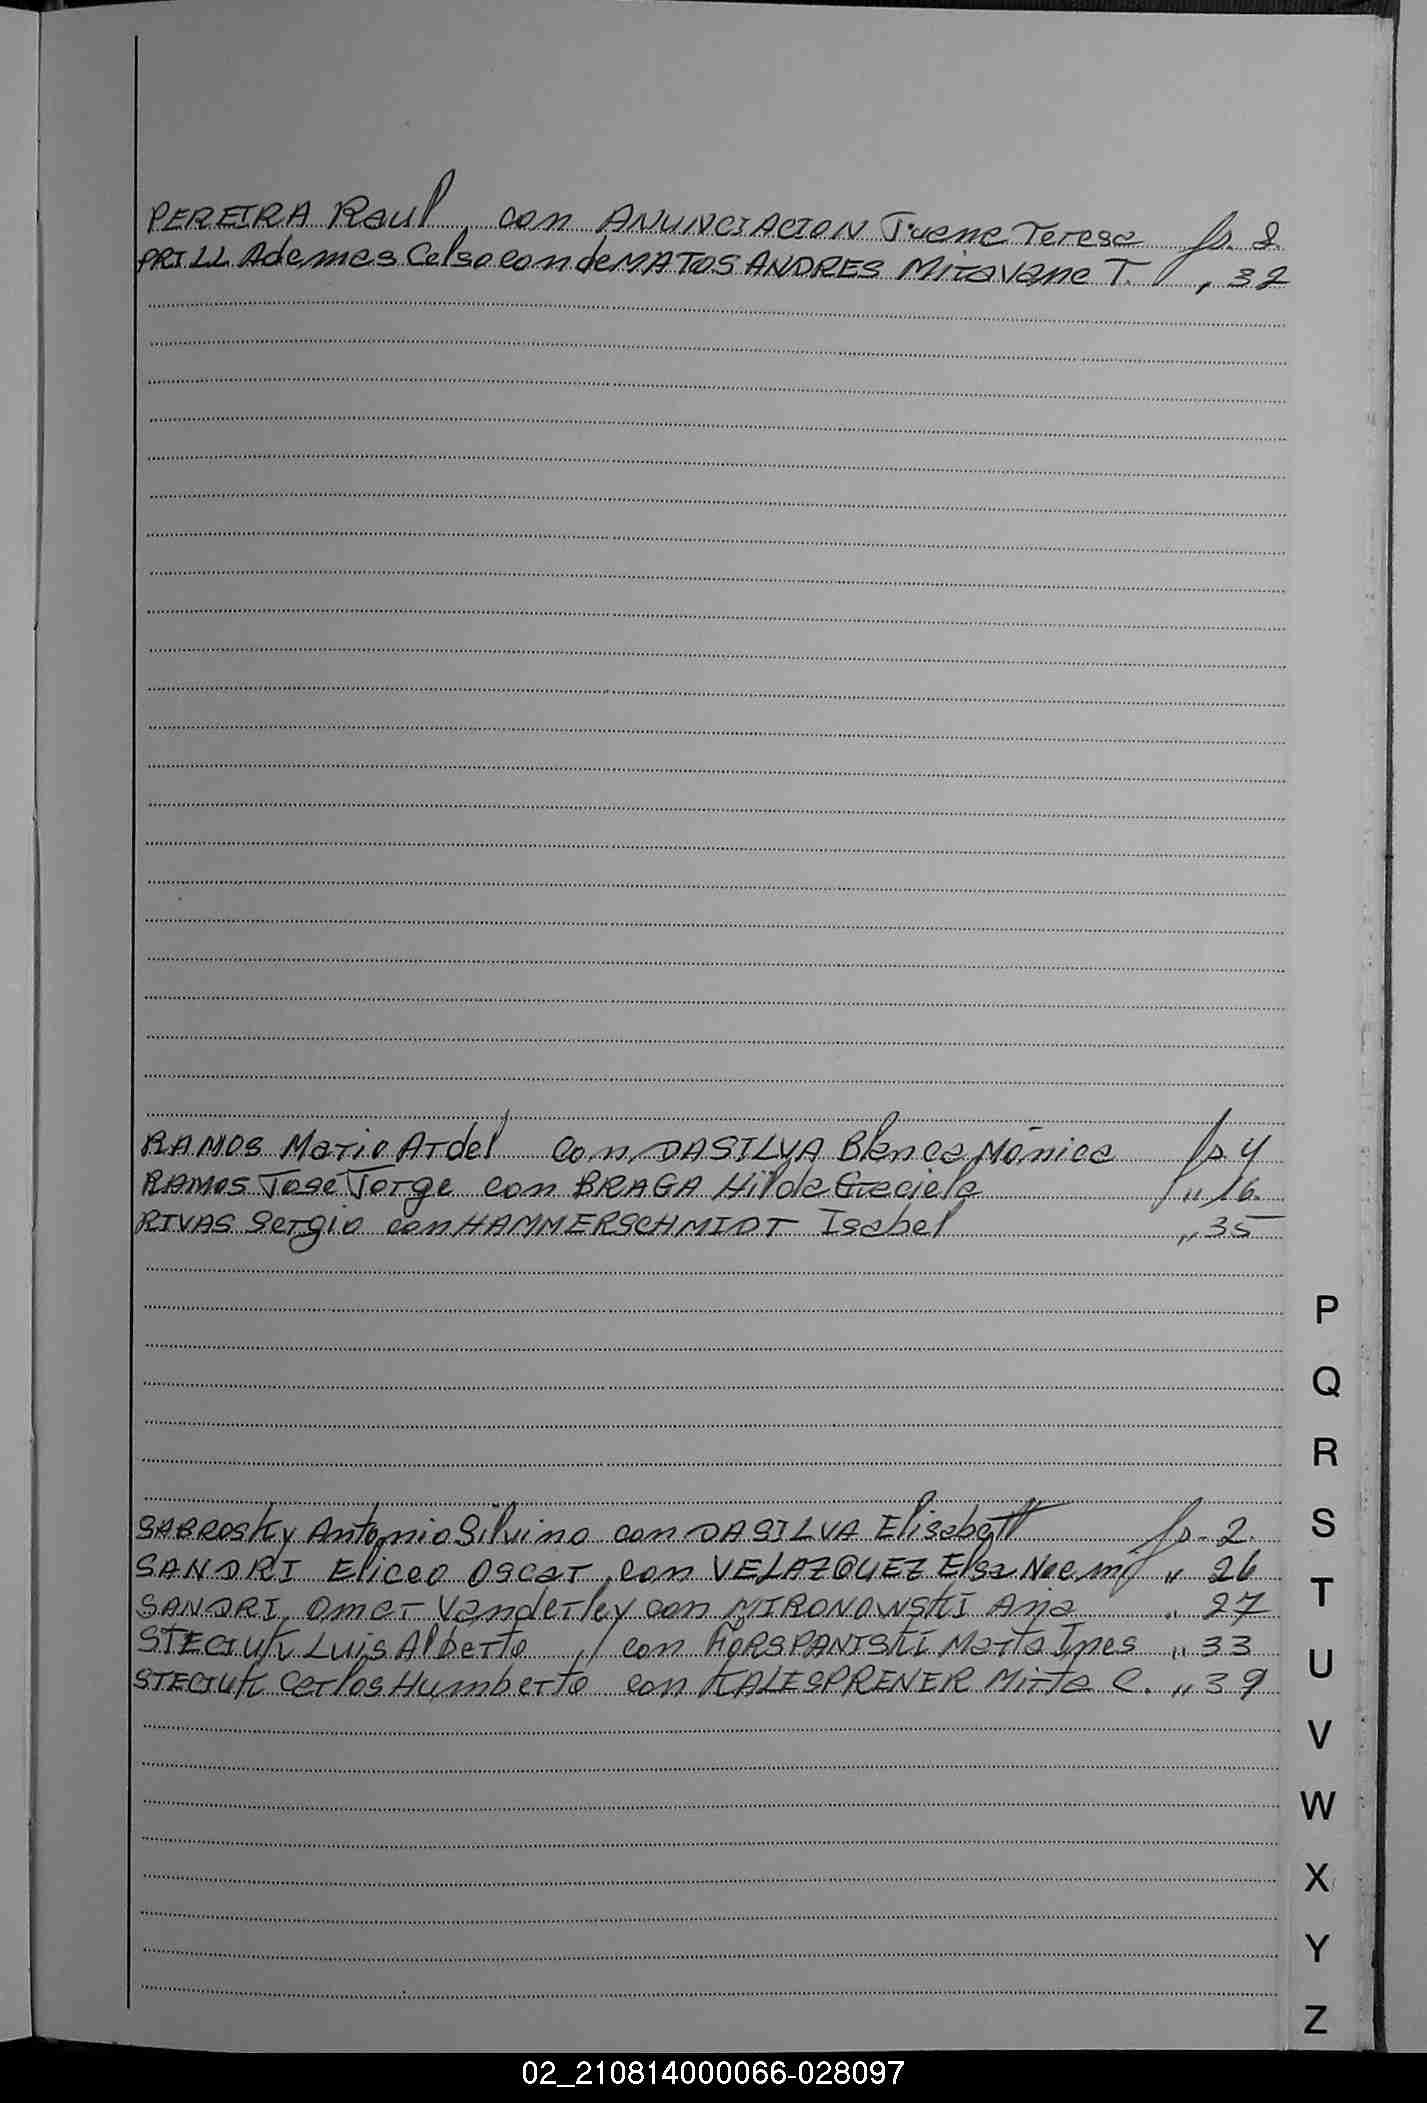 PEREIRA Raul con ANUNCIACION Teresa fs. 2
PRILL Ademes Celso con de MATOS ANDRES T. " 32
RAMOS Mario Ardel con DASILVA Blanca Mónica fs 4
RAMOS Jose Jorge con BRAGA Hilda Graciela " 16.
RIVAS Sergio con HAMMERSCHMIDT Isabel " 35
SABROSKY Antonio Silvino con DASILVA Elisabett fs. 2.
SANDRI Eliceo Oscar con VELAZQUEZ Elsa Noemy " 26
SANDRI, Omar Vanderley con MIRONOWSKI Ana " 27
STECIUK Luis Alberto con Marta Ines " 33
STECIUK Carlos Humberto con KALESPRENER Mirta C. " 39
P
Q
R
S
T
U
V
W
X
Y
Z
02_210814000066-028097